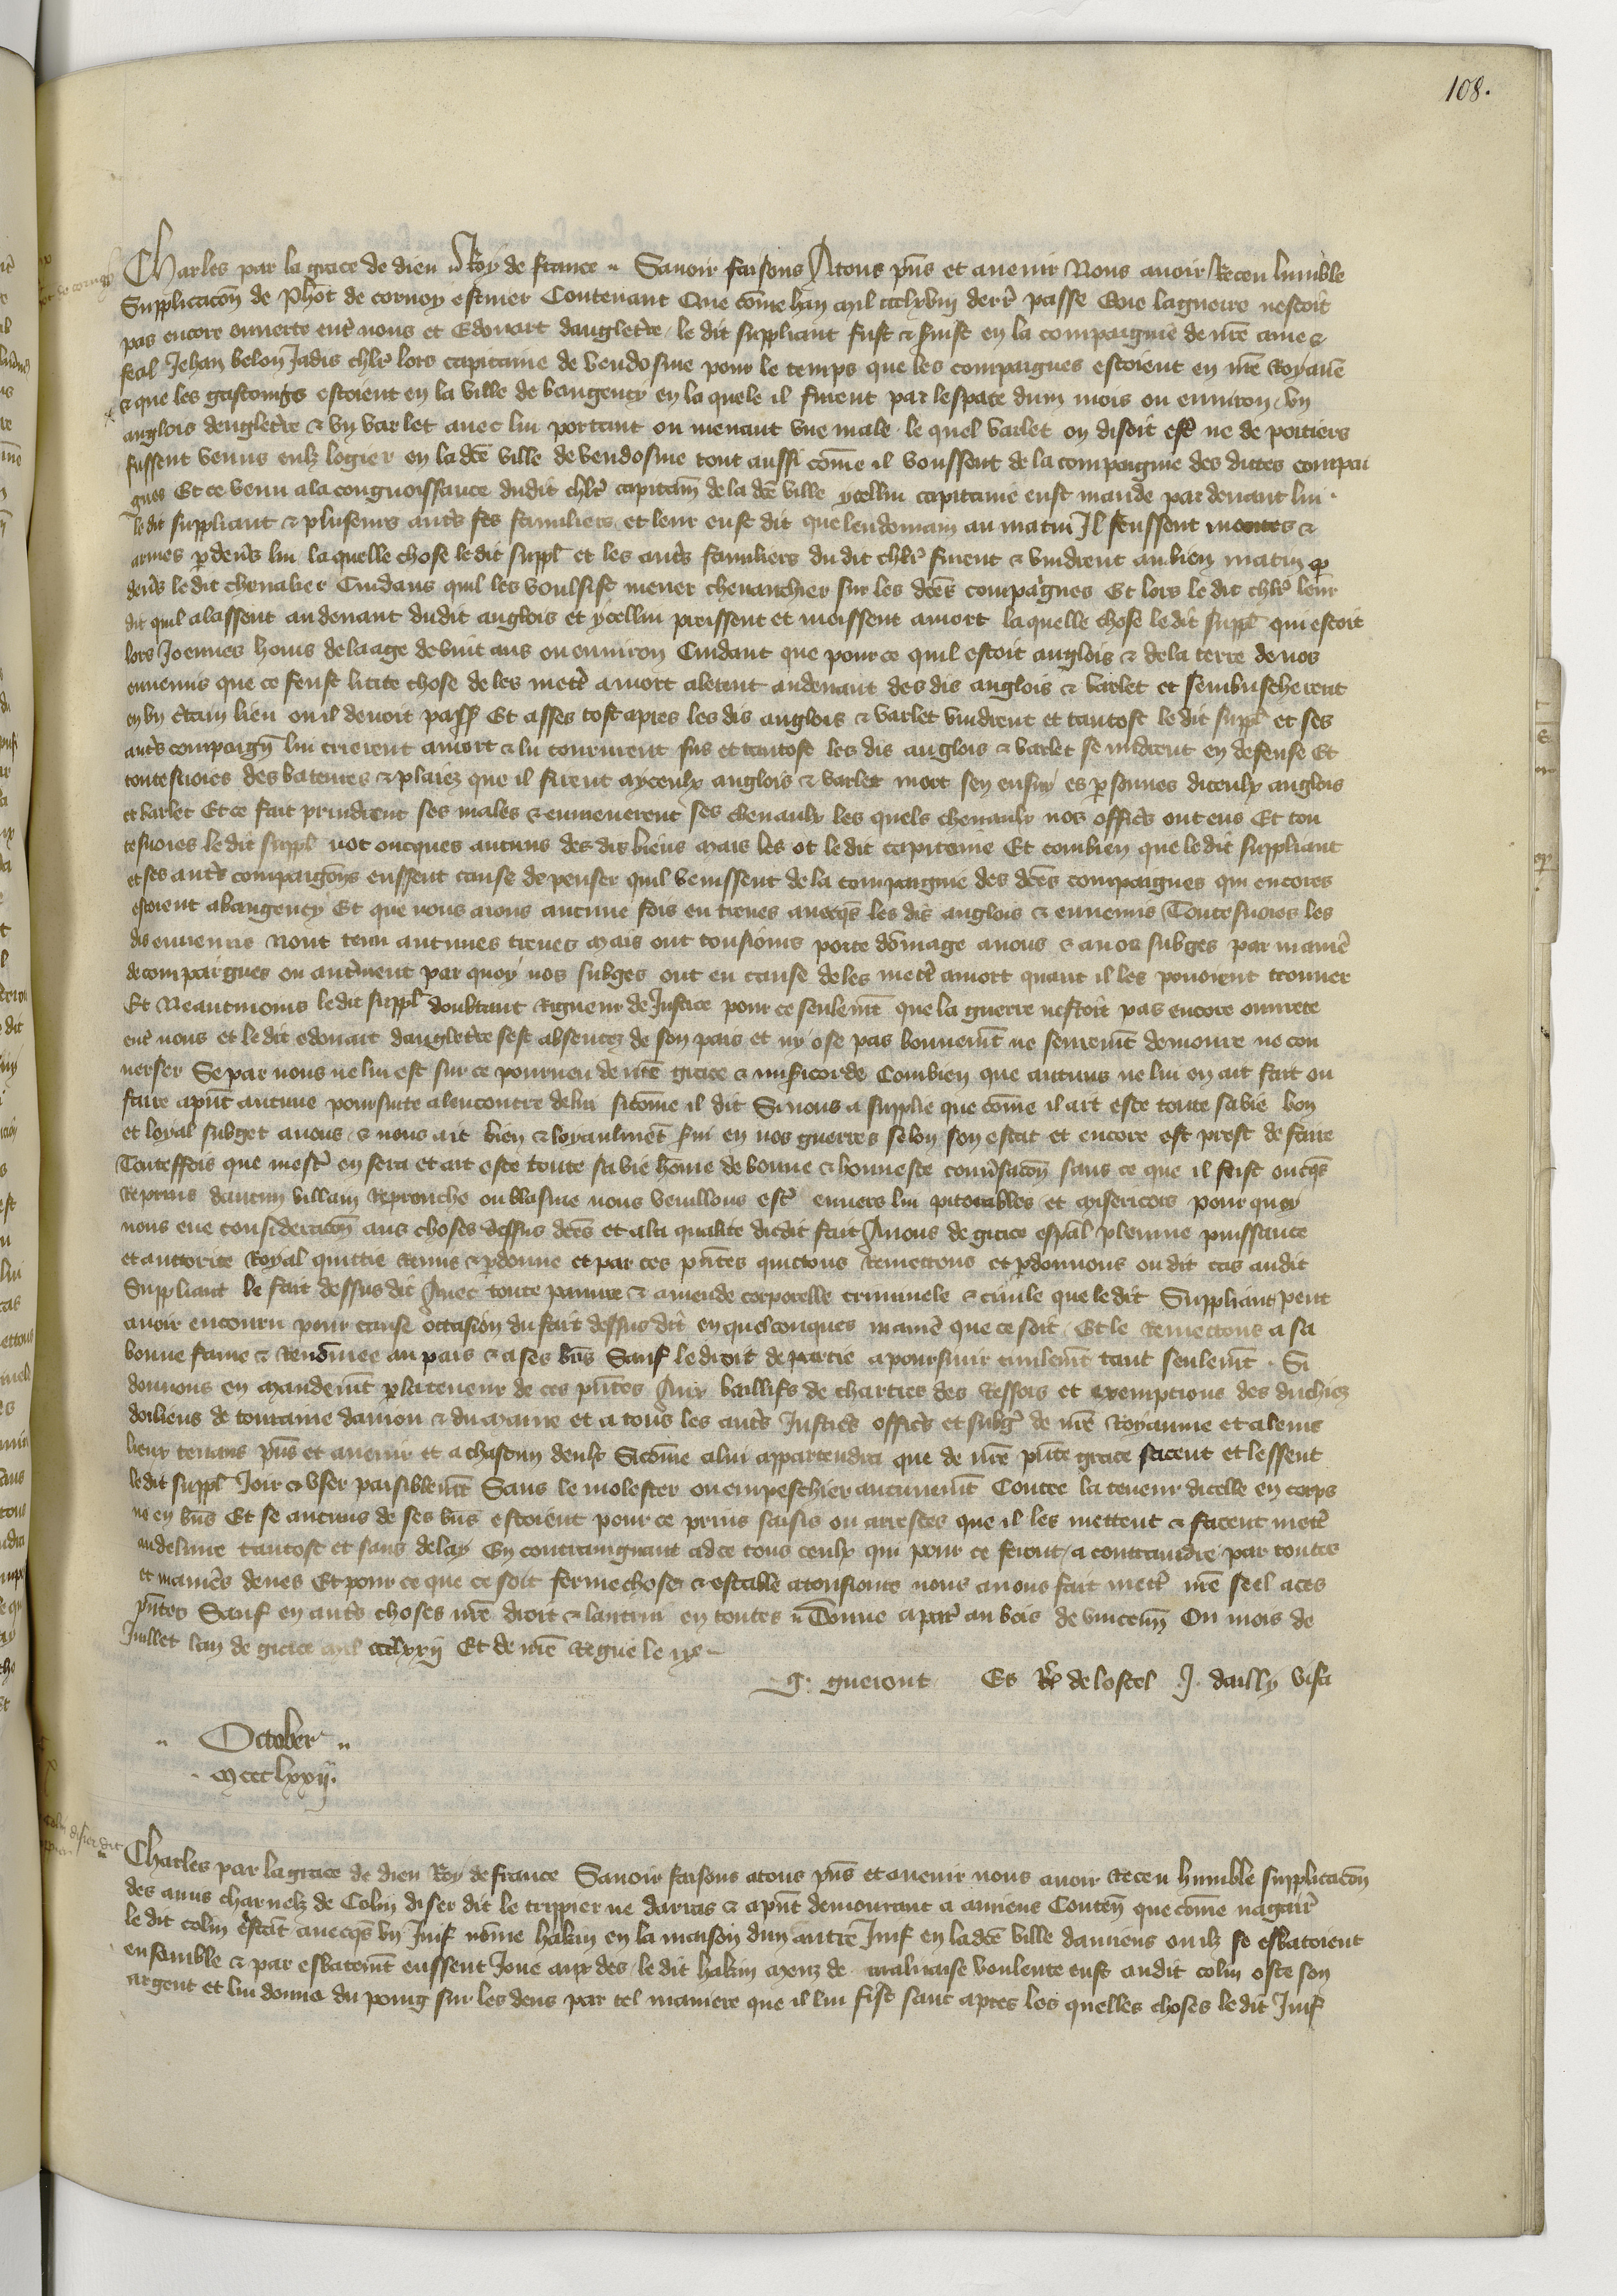 108.
Charles par la grace de dieu Roy de france Sauoir faisons Atous pn̄s et auenir Nous auoir Receu lumble
Supplicacōn de Phōt de cornoy escuier Contenant Que cōme lan mil ccclxviij derr̄ passe Que laguerre nestoit
pas encore ouuerte entr̄ nous et Edouart dangletr̄e le dit suppliant fust & seruist en la compaignie de nr̄e ame &
feal Jehan belon Jadis chlr̄ lors capitaine de vendosme pour le temps que les compaignes estoient en nr̄e Royaūe
& que les gascoings estoient en la ville de baugency en la quele il furent par lespace dum mois ou enuiron vn
anglois dengletr̄e & vn varlet auec lui portant ou menant vne male le quel varlet on disoit estr̄ ne de poitiers
fussent venus eulz logier en la dc̄e ville de vendosme tout aussi cōme il voussent de la compaignie des dictes compai
gnes Et ce venu ala congnoissance dudit chlr̄ capitain̄ de la dc̄e ville ycellui capitaine eust mande par deuant lui
le dit suppliant & pluseurs autr̄s ses familiers et leur eust dit que lendomain au matin Il feussent montes &
armes p̱deu̅s lui la quelle chose ledit suppl̄ et les autr̄s familiers du dit chlr̄ firent & vindrent au bien matin p̱
deu̅s ledit cheualier Cuidans quil les voulsist mener cheuauchier sur les dc̄es compaignes Et lors le dit chlr̄ leur
dit quil alassent audeuant dudit anglois et ycellui preissent et meissent amort laquelle chose ledit suppl̄ qui estoit
lors Joennes homs delaage devint ans ou enuiron Cuidant que pource quil estoit anglois & dela terre de nos
ennemis que ce feust licite chose de les mectr̄ amort alerent audeuant des dis anglois & varlet et sembuscherent
en vn c̄tain lieu ou il deuoit passer Et asses tost apres les dis anglois & varlet vindrent et tantost le dit suppl̄ et ses
autr̄s compaign̄ lui crierent amort & lui coururent sus et tantost les dis anglois & varlet se midrent en defense Et
toutesuoies des bateures & plaiez que il firent ayceulx anglois & varlet mort sen ensuy es p̱sonnes diceulx anglois
et varlet Et ce fait prindrent ses males & enmenerent ses cheuaulx les quels cheuaulx nos offic̄rs ont eus Et tou
tesuoies le dit suppl̄ not oncques aucuns des dis biens mais les ot le dit capitaine Et combien que le dit suppliant
et ses autr̄s compaigōns eussent cause de penser quil venissent de la compaignie des dc̄es compaignes qui encores
estoient abaugency Et que nous aions aucune fois eu treues auecqs̄ les dis anglois & ennemis Toutesuoies les
dis ennemis Nont tenu aucunes treues Mais ont tousiours porte dōmage anous & anos subges par manier̄
de compaignes ou autr̄ment par quoy nos subges ont eu cause deles mectr̄ amort quant il les pouoient trouuer
Et Neantmoins ledit suppl̄ doubtant Rigueur de Justice pour ce seulemēt que la guerre nestoit pas encore ouuerte
entr̄ nous et le dit edouart dangletr̄e sest absentez de son pais et ny ose pas bonnemēt ne seuremēt demourer ne con
uerser Se par nous ne lui est sur ce pourueu de nr̄e grace & miscricorde Combien que aucuns ne lui en ait fait ou
faire apn̄t aucune poursuite alencontre delui sicōme il dit Si nous a supplie que cōme il ait este toute sa vie bon
et loyal subget anous & nous ait bien & loyaulmēt serui en nos guerres selon son estat et encore est prest de faire
Toutesfois que mestr̄ en sera et ait este toute sa vie hōme de bonne & honneste conuersacōn sans ce que il feist oncqs̄
Reprins daucun villain Reprouche ou blasme nous veuillons estr̄ enuers lui piteables et misericors pour quoy
nous eue consideracōn aus choses dessus dc̄es et ala qualite dudit fait Auons de grace esp̄al plenme puissance
et auctorite Royal quictie Remis & p̱donne et par ces pn̄tes quictons Remettons et p̱donnons ou dit cas audit
Suppliant le fait dessus dit Auec toute painne & amende corporelle criminele & ciuile que le dit Suppliant peut
auoir encouru pour cause occasion du fait dessus dit en quelconques manier̄ que ce soit Et le Remettons a sa
bonne fame & Renōmee au pais & a ses bn̄s Sauf le droit de partie apoursuir ciuilemēt tant seulemēt Si
donnons en mandemēt p̱ la teneur de ces pn̄tes Aux baillifs de chartres des Ressors et exempcions des duchiez
dorliens de touraine daniou & du maine et a tous les autr̄s Justic̄rs offic̄rs et subḡs de nr̄e Royaume et aleurs
lieux tenans pn̄s et auenir et a chascun deulx Sicōme alui appartendra que de nr̄e pn̄te grace facent et lessent
ledit suppl̄ Joir & vser paisiblemēt Sans le molester ou empeschier aucunemēt Contre la teneur dicelle en corps
ne en bn̄s Et se aucuns de ses bn̄s estoient pour ce prins saisis ou arrestes que il les mettent & facent mectr̄
audeliure tantost et sans delay En contraingnant ad ce tous ceulx qui pour ce feront a contraindre par toutes
et manier̄s deues Et pour ce que ce soit ferme chose & estable atousiours nous auons fait mectr̄ nr̄e seel aces
pn̄tes Sauf en autr̄s choses nr̄e droit & lautrui en toutes Donne a par̄ au bois de vincenn̄ Ou mois de
Juillet lan de grace mil ccclxxij Et de nr̄e Regne le ixe
G. gueront Es Req̄ de lostel J. dailly visa
October
mccclxxij.
Charles par la grace de dieu Roy de france Sauoir faisons atous pn̄s et auenir nous auoir Receu humble supplicacōn
des amis charnelz de Colin diser dit le trippier ne darras & apn̄t demourant a amiens Conten̄ que cōme nagair̄
le dit colin estāt auecqs̄ vn Juif nōme hakin en la maison dun autre Juif en ladc̄e ville damiens ou ilz se esbatoient
ensamble & par esbatemēt eussent Joue aux des le dit hakin meuz de maluaise voulente eust audit colin oste son
argent et lui donne du poing sur les dens par tel maniere que il lui fist sanc apres les quelles choses le dit Juif